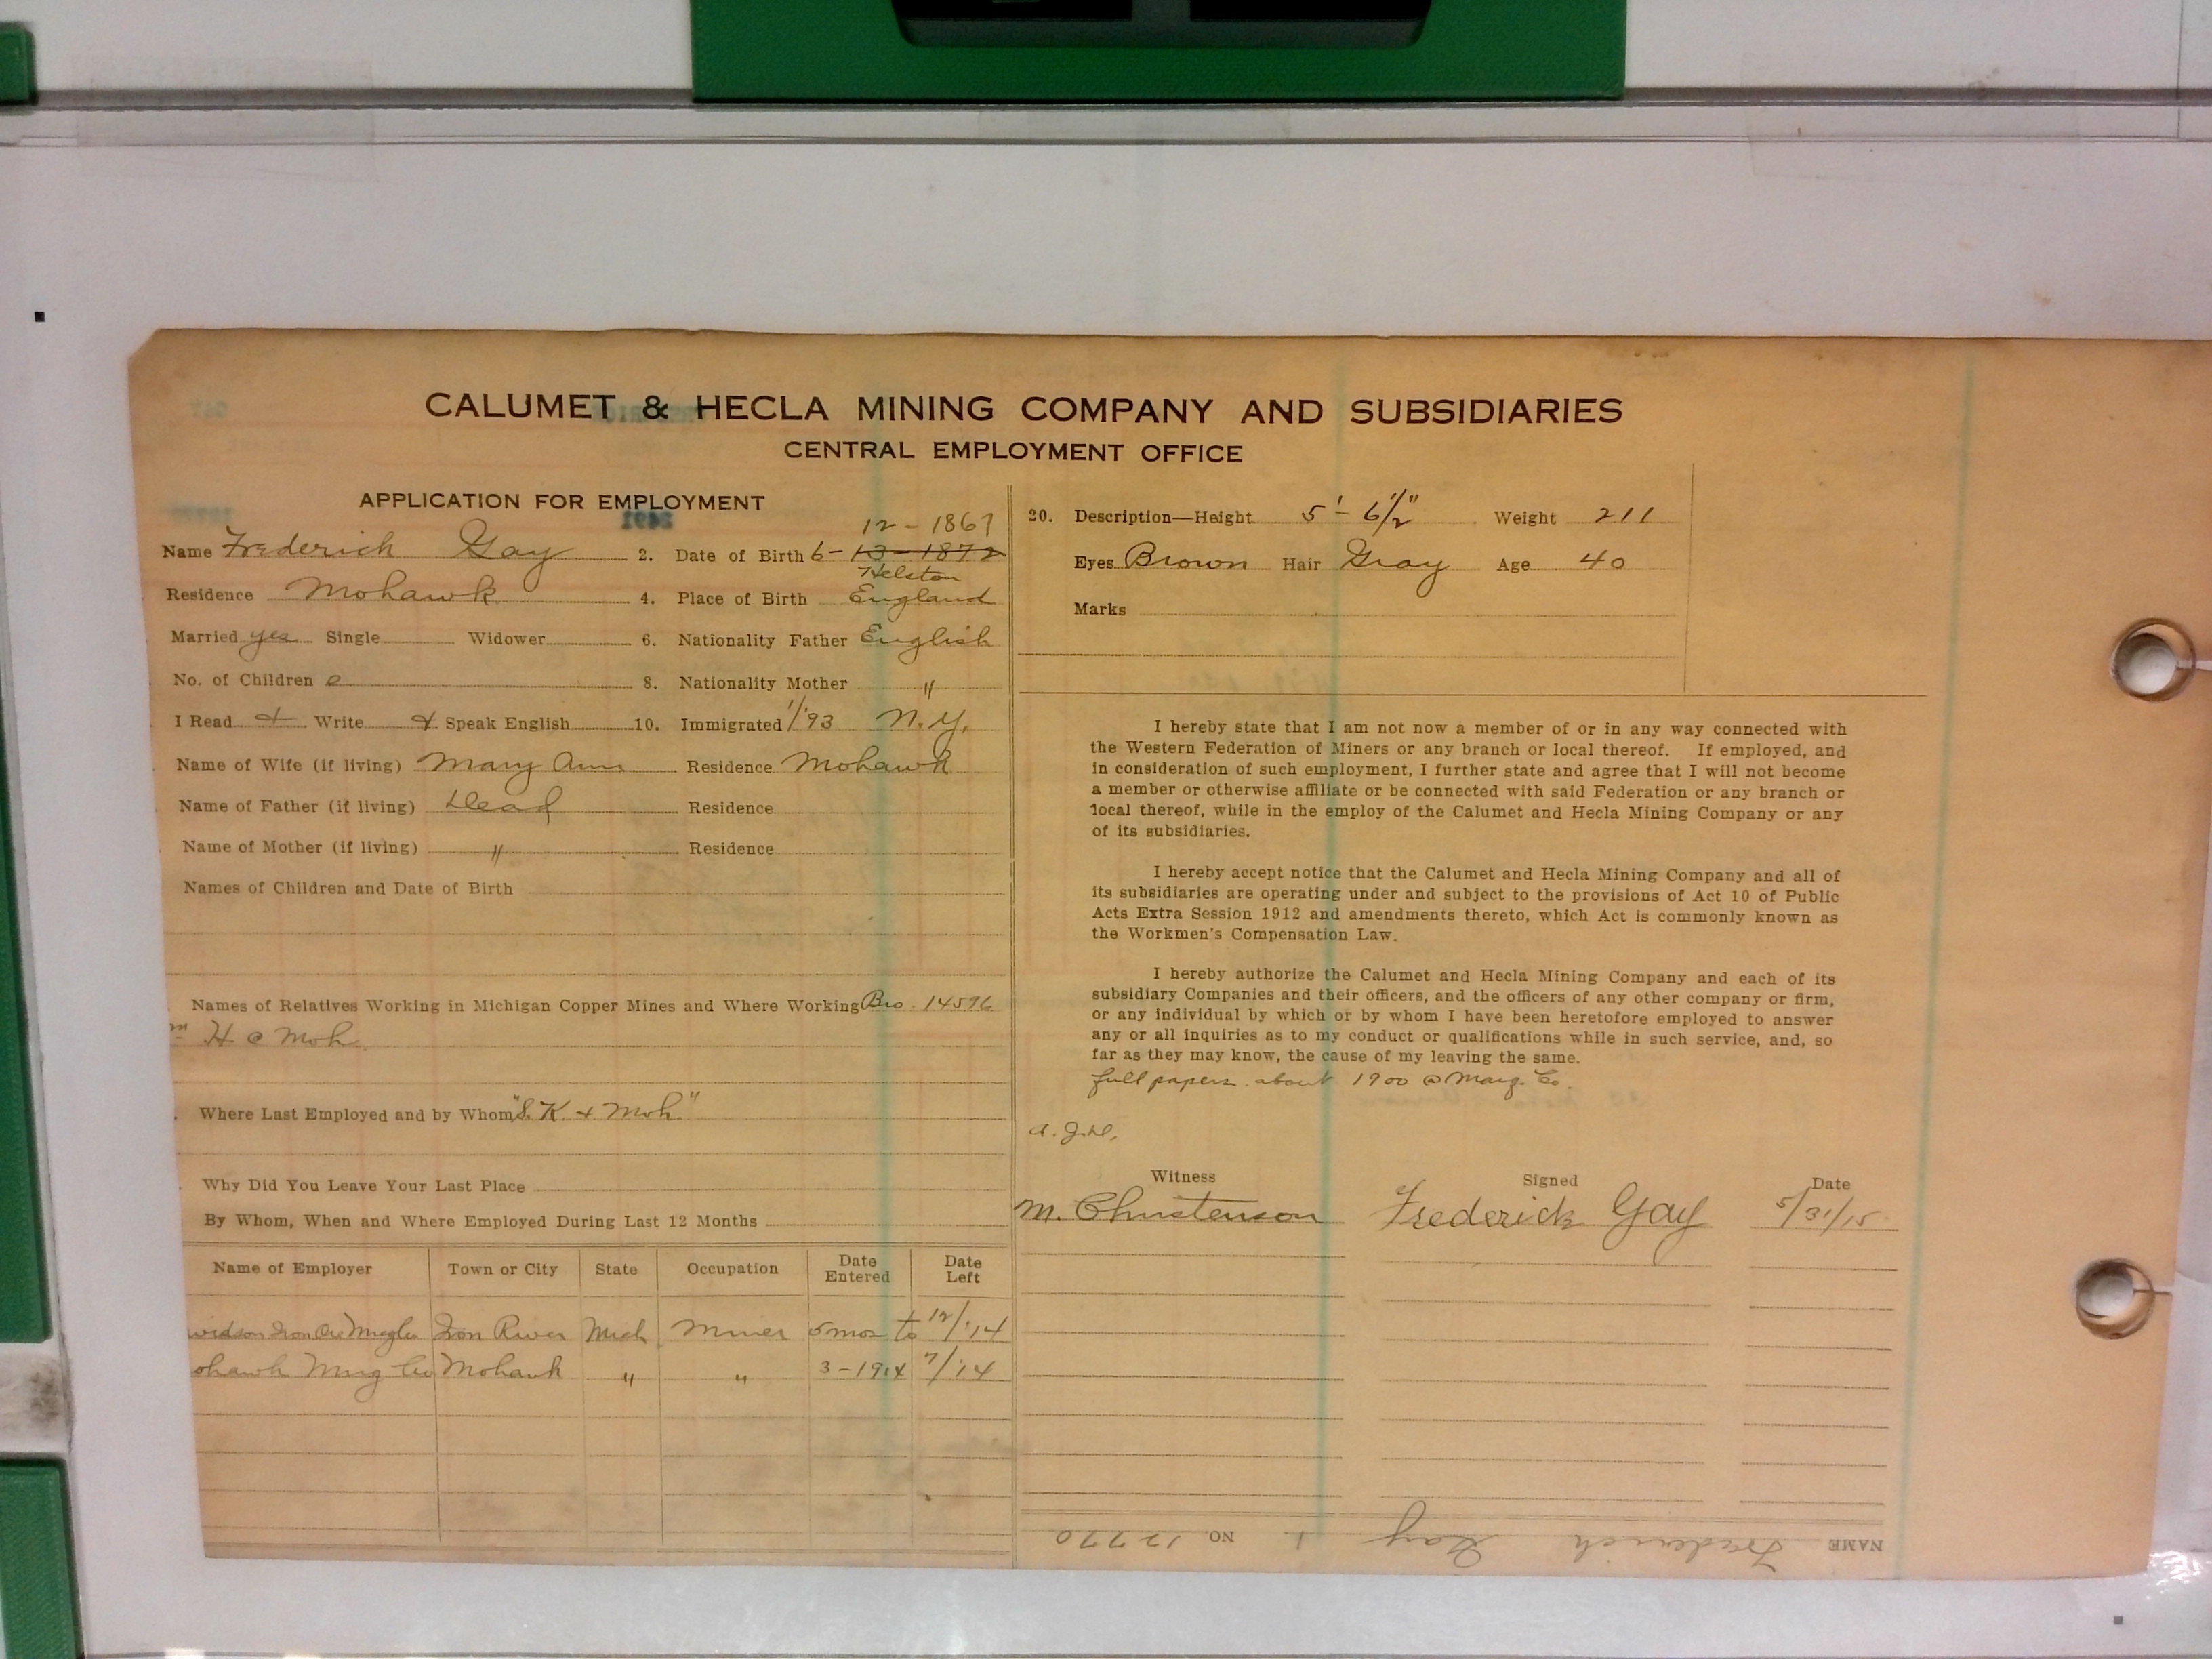 CALUMET & HECLA MINING COMPANY AND SUBSIDIARIES
CENTRAL EMPLOYMENT OFFICE
APPLICATION FOR EMPLOYMENT
12 - 1867
Name Frederick Gay 2. Date of Birth 6 - 13 - 1872
Helston
Residence Mohawk 4. Place of Birth England
Married yes Single Widower 6. Nationality Father English
No. of Children 0 8. Nationality Mother "
I Read & Write & Speak English 10. Immigrated 1/'93 N.Y.
Name of Wife (if living) Mary Ann Residence Mohawk
Name of Father (if living) Dead Residence
Name of Mother (if living) " Residence
Names of Children and Date of Birth
Names of Relatives Working in Michigan Copper Mines and Where Working Bro. 14596
H @ Moh
Where Last Employed and by Whom "S. K & Moh."
Why Did You Leave Your Last Place
By Whom, When and Where Employed During Last 12 Months
Name of Employer Town or City State Occupation Date Entered Date Left
vidson Iron Ore Iron River Mich Miner 5 mos to 12/'14
ohawk Mng Co Mohawk " " 3-1914 7/'14
20. Description—Height 5' - 6 1/2" Weight 211
Eyes Brown Hair Gray Age 40
Marks
I hereby state that I am not now a member of or in any way connected with
the Western Federation of Miners or any branch or local thereof. If employed, and
in consideration of such employment, I further state and agree that I will not become
a member or otherwise affiliate or be connected with said Federation or any branch or
local thereof, while in the employ of the Calumet and Hecla Mining Company or any
of its subsidiaries.
I hereby accept notice that the Calumet and Hecla Mining Company and all of
its subsidiaries are operating under and subject to the provisions of Act 10 of Public
Acts Extra Session 1912 and amendments thereto, which Act is commonly known as
the Workmen's Compensation Law.
I hereby authorize the Calumet and Hecla Mining Company and each of its
subsidiary Companies and their officers, and the officers of any other company or firm,
or any individual by which or by whom I have been heretofore employed to answer
any or all inquiries as to my conduct or qualifications while in such service, and, so
far as they may know, the cause of my leaving the same.
full papers about 1900 @ Marq. Co.
Witness Signed Date
M. Christenson Frederick Gay 5/31/15
NAME Frederick Gay NO. 12770